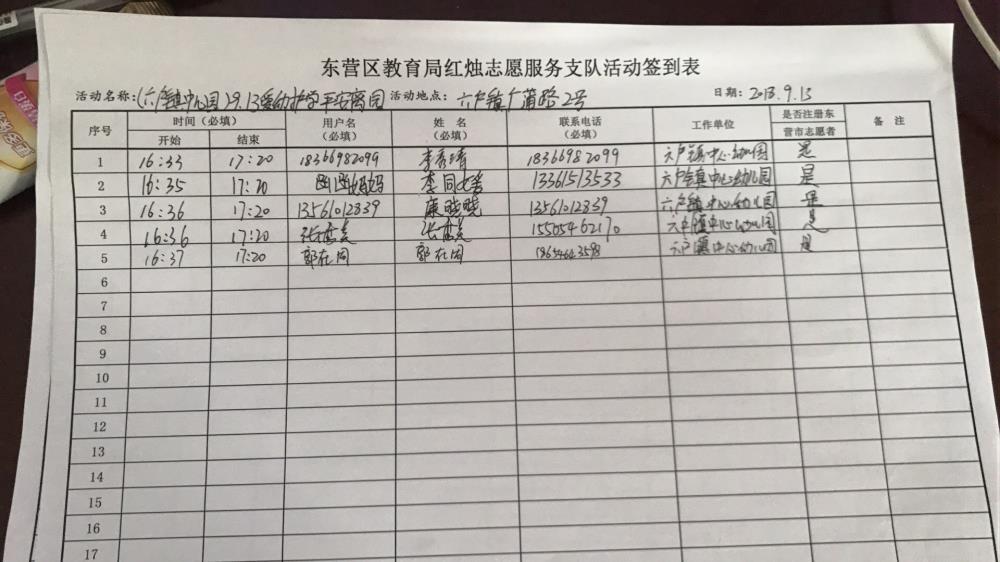 东营区教育局红烛志愿服务支队活动签到表
活动名称:(六户镇中心园)9.13爱幼护学平安离园 活动地点: 六户镇广蒲路2号 日期: 2018.9.13
序号 时间(必填) 用户名(必填) 姓 名(必填) 联系电话(必填) 工作单位 是否注册东营市志愿者 备 注
开始 结束
1 16:33 17:20 18366982099 李秀靖 18366982099 六户镇中心幼儿园 是
2 16:35 17:20 妈 李同媛 13361513533 六户镇中心幼儿园 是
3 16:36 17:20 13561012839 康晓晓 13561012839 六户镇中心幼儿园 是
4 16:36 17:20 张 张 15505462170 六户镇中心幼儿园 是
5 16:37 17:20 郭在同 郭在同 18654643598 六户镇中心幼儿园 是
6
7
8
9
10
11
12
13
14
15
16
17